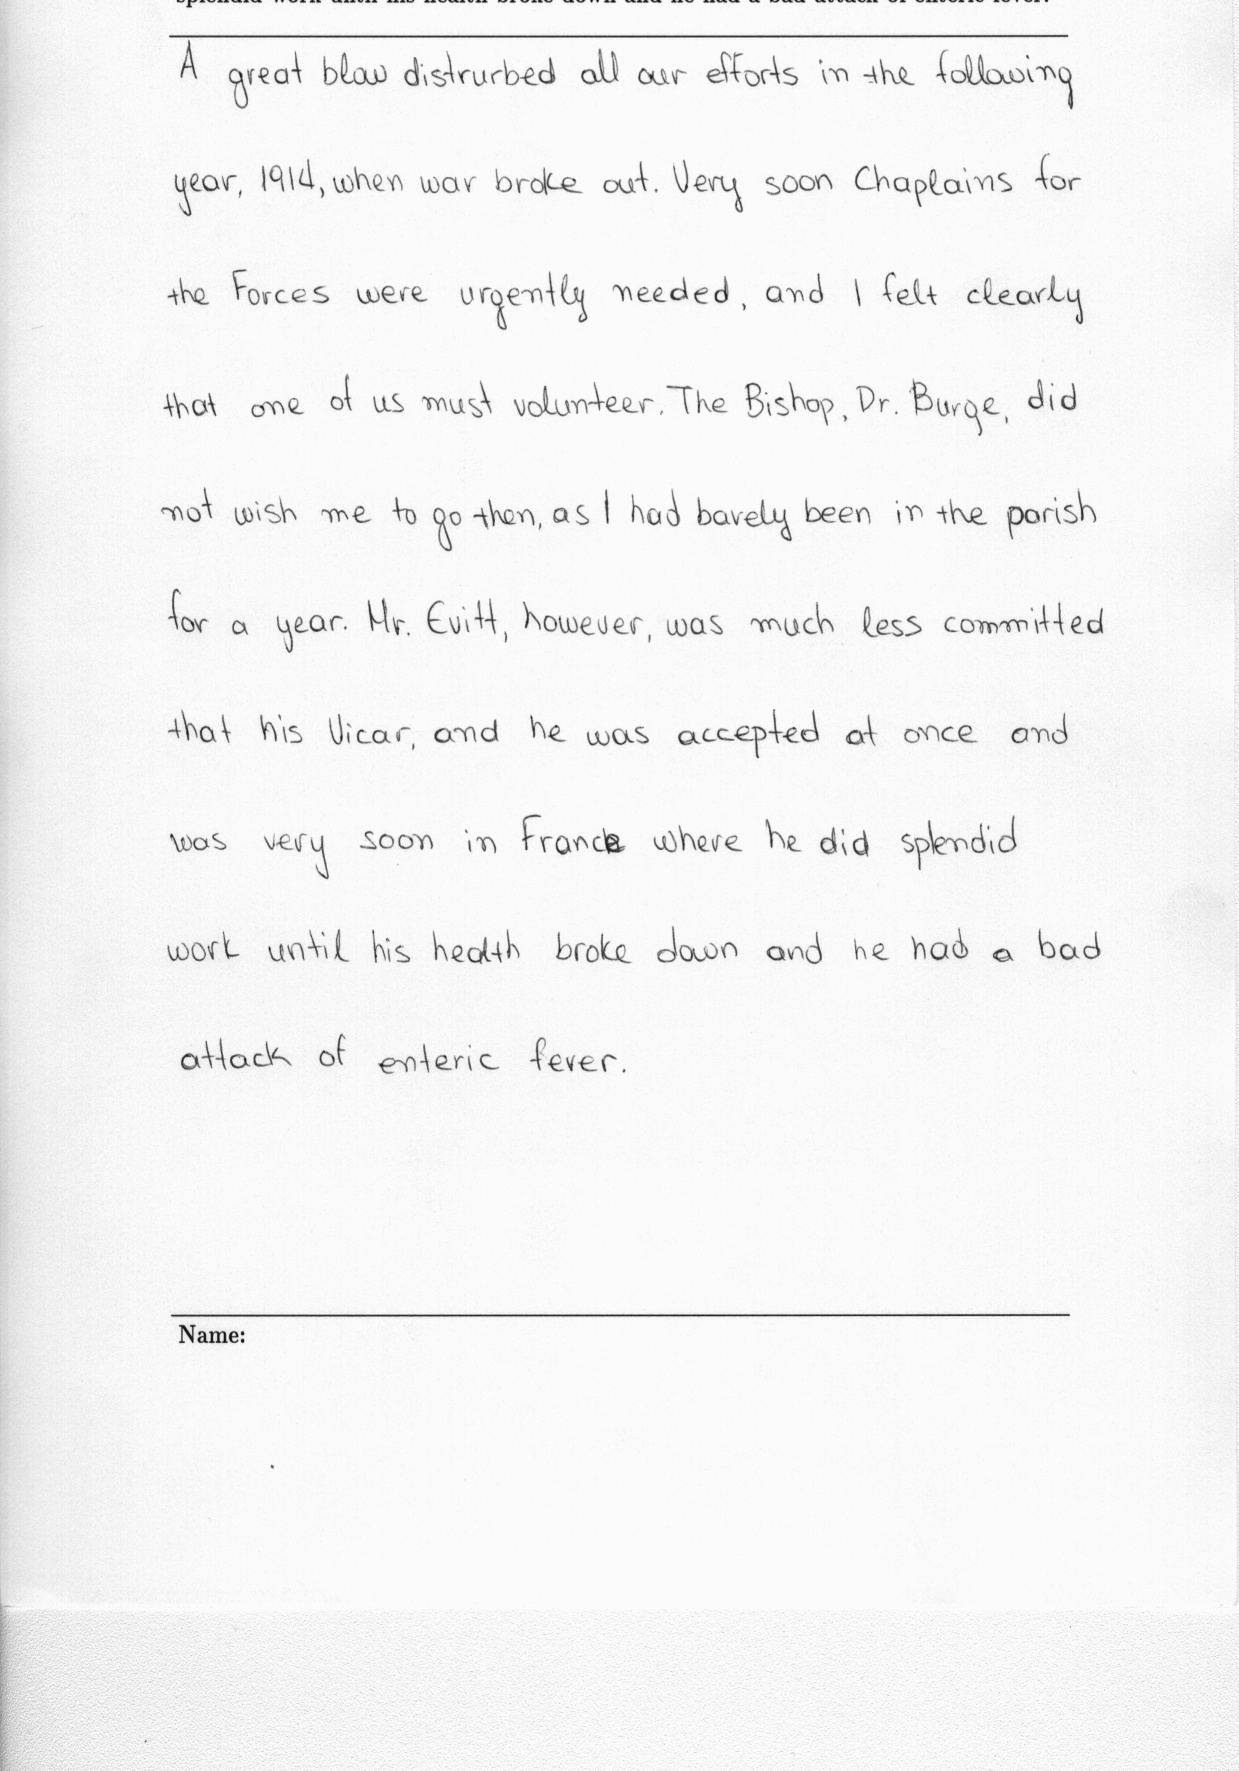 splendid work until his health broke down and he had a bad attack of enteric fever.
A great blow distrurbed all our efforts in the following
year, 1914, when war broke out. Very soon Chaplains for
the Forces were urgently needed, and I felt clearly
that one of us must volunteer. The Bishop, Dr. Burge, did
not wish me to go then, as I had barely been in the parish
for a year. Mr. Evitt, however, was much less committed
that his Vicar, and he was accepted at once and
was very soon in France where he did splendid
work until his health broke down and he had a bad
attack of enteric fever.
Name: